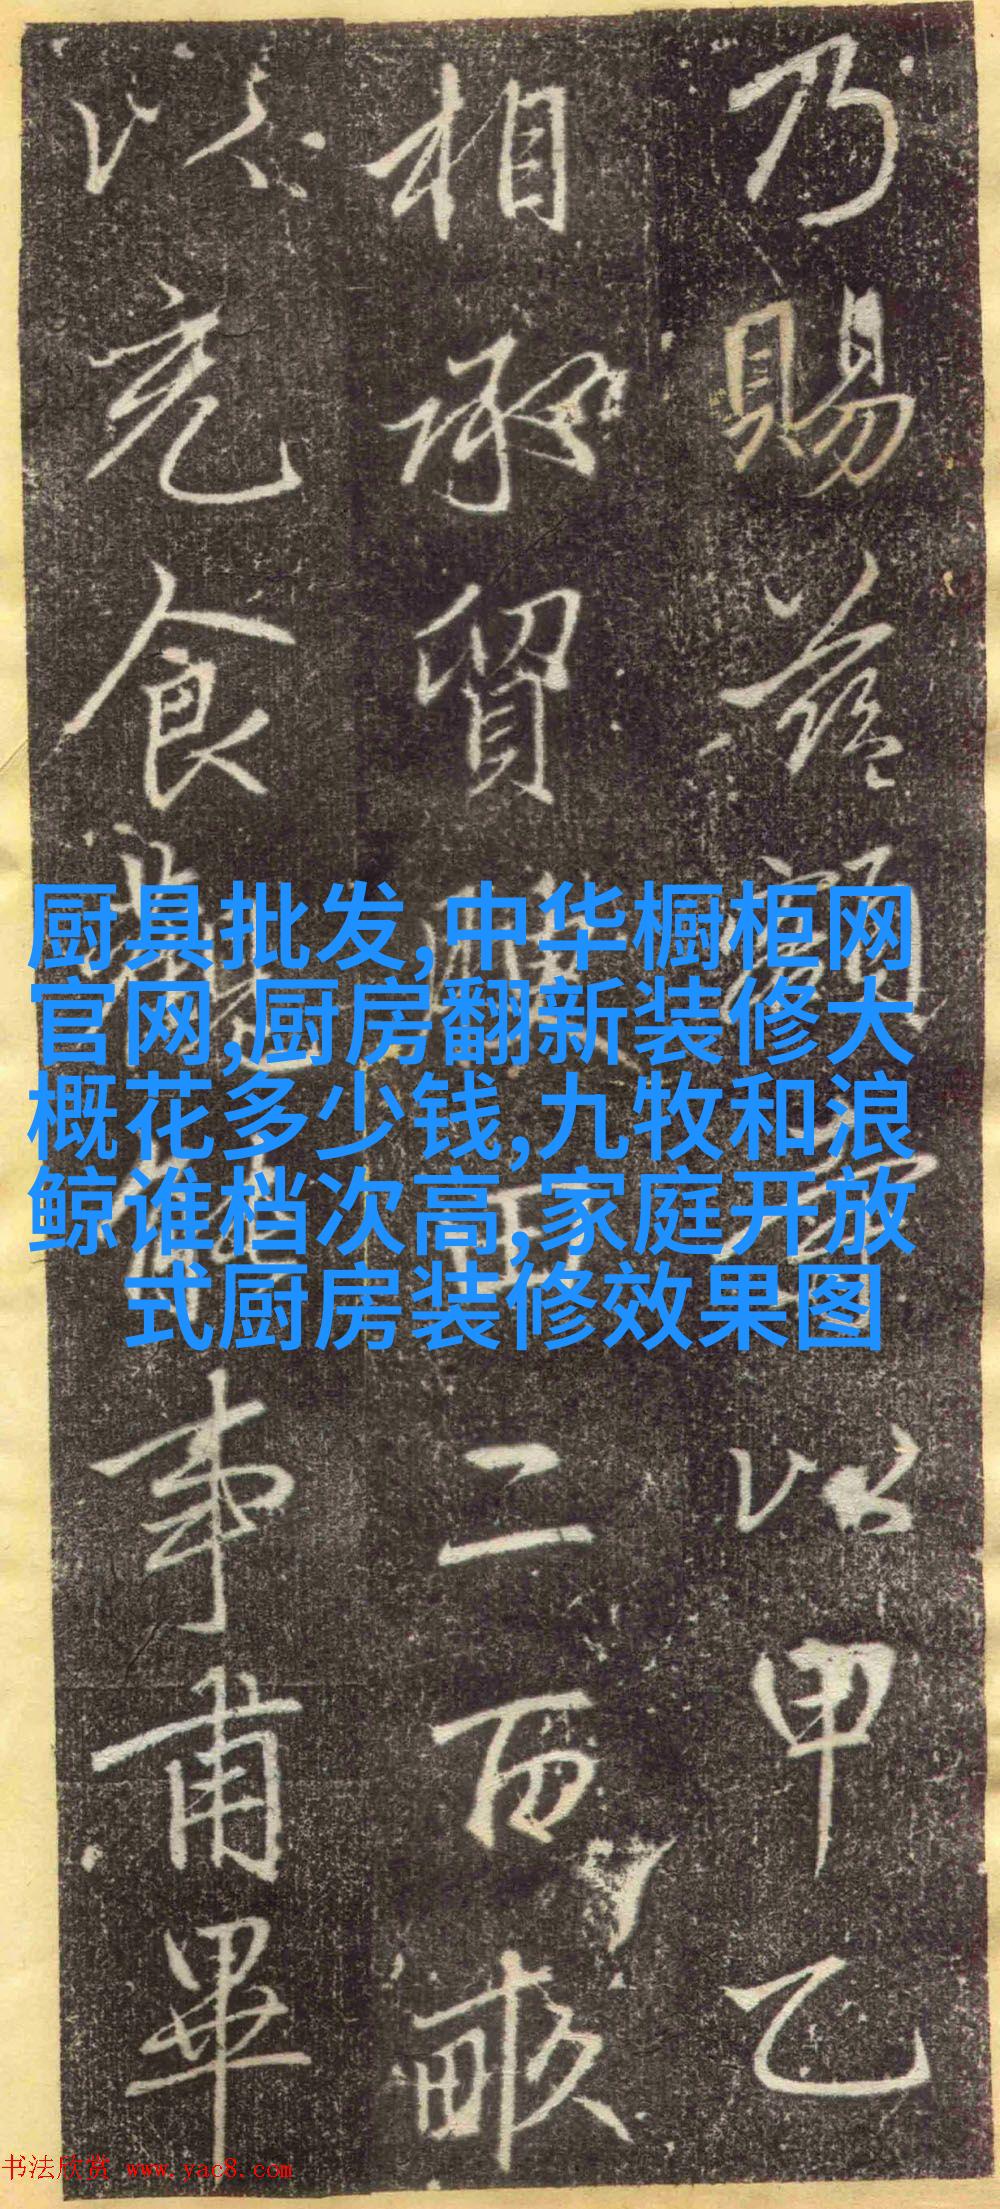 乃賜顧以甲乙
相承貿二百畝
以充食事甫畢
厨具批发,中华橱柜网
官网,厨房翻新装修大
概花多少钱,九牧和浪
鲸谁档次高,家庭开放
式厨房装修效果图
书法欣赏 www.yac8.com